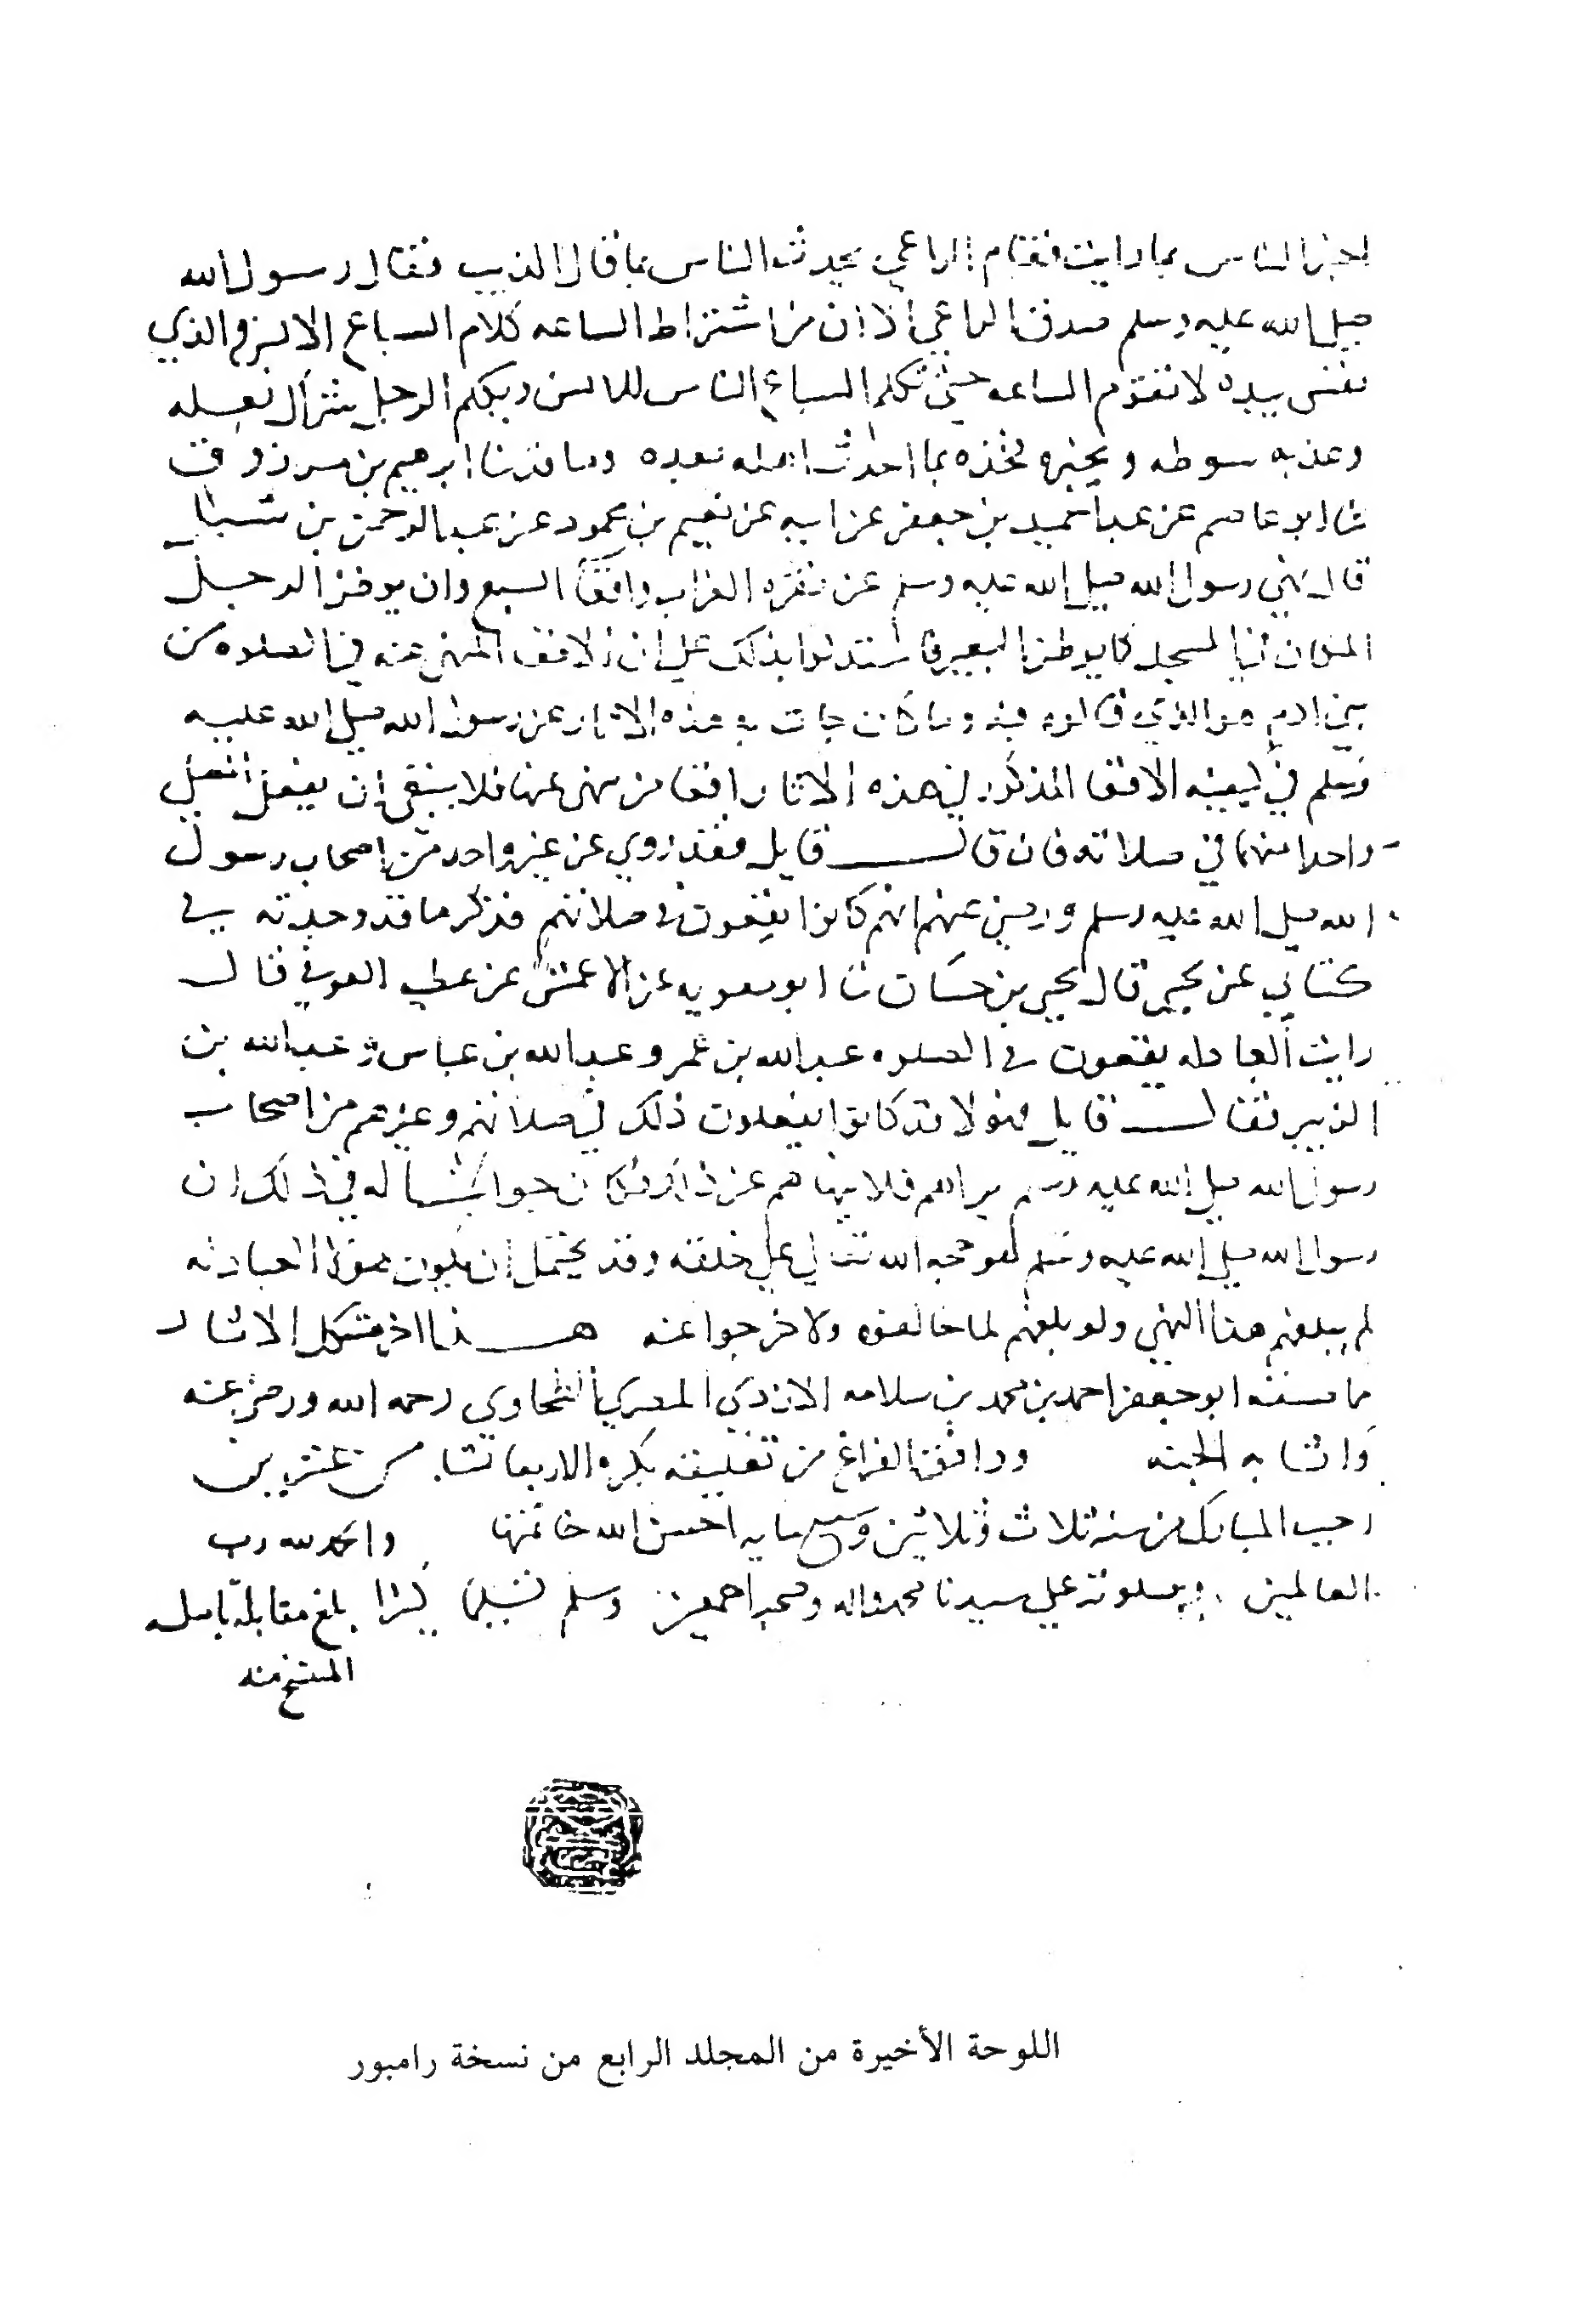 اخبر الناس بما رايت فقام الراعي يحدث الناس بما قال الذيب فقال رسول الله
صلى الله عليه وسلم صدق الراعي الا ان من اشتراط الساعه كلام السباع الانس والذي
نفسي بيده لا تقوم الساعه حتى تكلم السباع الناس ويكلم الرجل شراك نعله
وعذبه سوطه ويخبره فخذه بما احدث اهله بعده وما قد ثنا ابرهيم بن مرزوق
ثنا ابو عاصم عن عبد الحميد بن جعفر عن ابيه عن تميم بن محمود عن عبد الرحمن بن شبل
قال نهى رسول الله صلى الله عليه وسلم عن نقره الغراب واقعا السبع وان يوطن الرجل
المكان في المسجد كما يوطن البعير فاستدلوا بذلك على ان الاقعا المنهي عنه في الصلوه من
بني ادم هو الذي قالوه فيه وما كان جات به هذه الاثار عن رسول الله صلى الله عليه
وسلم في الاقعا المذكور في هذه الاثار اقعا من نهى عنها فلا ينبغي ان يفعل المصلي
واحدا منهما في صلاته فان قال قايل فقد روي عن غير واحد من اصحاب رسول
الله صلى الله عليه وسلم ورضي عنهم انهم كانوا يقعون في صلاتهم فذكر ما قد وجدته في
كتابي عن يحيى قال يحيى بن حسان ثنا ابو معويه عن الاعمش عن عطيه العوفي قال
رايت العبادله يقعون في الصلوه عبد الله بن عمر وعبد الله بن عباس وعبد الله بن
الزبير فقال قايل فهولا قد كانوا يفعلون ذلك في صلاتهم وغيرهم من اصحاب
رسول الله صلى الله عليه وسلم يراهم فلا ينهاهم عن ذلك فكان جوابنا له في ذلك ان
رسول الله صلى الله عليه وسلم هو حجه الله تعالى على خلقه وقد يحتمل ان يكون هولا العبادله
لم يبلغهم هذا النهي ولو بلغهم لما خالفوه ولا خرجوا عنه هذا اخر مشكل الاثار
مما صنفه ابو جعفر احمد بن محمد بن سلامه الازدي المصري الطحاوي رحمه الله ورضي عنه
واثابه الجنه ووافق الفراغ من تعليقه بكره الاربعا من عشرين
رجب المبارك من سنه ثلاث وثلاثين وسبع مايه احسن الله خاتمتها والحمد لله رب
العالمين وصلوته على سيدنا محمد واله وصحبه اجمعين وسلم تسليما كثيرا بلغ مقابلة باصله
المنتسخ منه
اللوحة الأخيرة من المجلد الرابع من نسخة رامبور